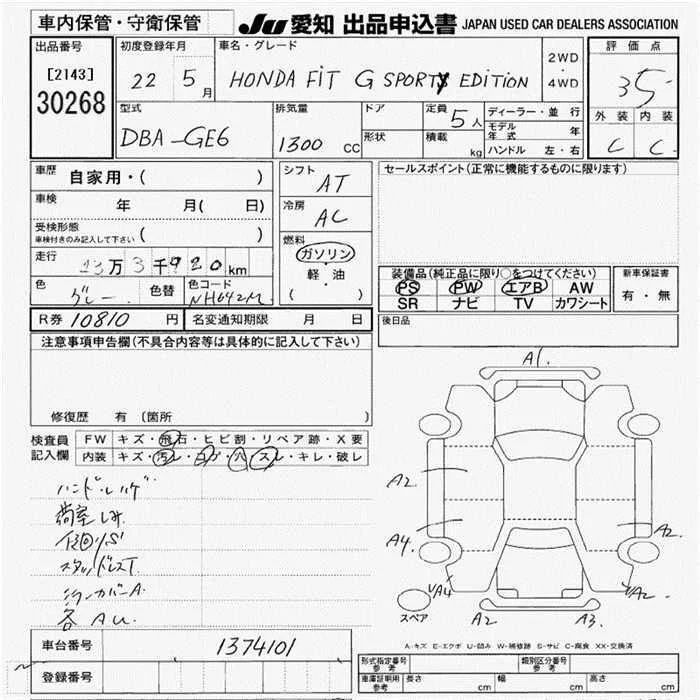 車内保管・守衛保管
JU 愛知 出品申込書 JAPAN USED CAR DEALERS ASSOCIATION
出品番号
[2143]
30268
初度登録年月
22 5月
車名・グレード
HONDA FiT G SPORTY EDITION
2WD
・
4WD
評価点
35
外装 内装
C C
型式
DBA-GE6
排気量
1300 CC
ドア
形状
定員
5人
積載
kg
ディーラー・並行
モデル年式 年
ハンドル 左・右
車歴
自家用・( )
車検
年 月( 日)
受検形態
車検付きのみ記入して下さい ( )
走行
万 3千920km
色
グレー
色替
色コード
NH642M
シフト
AT
冷房
AC
燃料
ガソリン
・
軽・油
( )
セールスポイント(正常に機能するものに限ります)
装備品(純正品に限り○をつけてください)
PS PW エアB AW
SR ナビ TV カワシート
新車保証書
有・無
R券 10810 円
名変通知期限 月 日
後日品
注意事項申告欄(不具合内容等は具体的に記入して下さい)
修復歴 有 (箇所 )
検査員
記入欄
FW キズ・飛石・ヒビ割・リペア跡・X要
内装 キズ・汚レ・コゲ・穴・スレ・キレ・破レ
ハンドルハゲ
荷室しみ
スタッドレスT
ミラーカバーA
各AU
A1.
A2.
A4.
A2
A4
A2
A2.
A3.
スペア
A-キズ E-エクボ U-凹み W-補修跡 S-サビ C-腐食 XX-交換済
車台番号
1374101
登録番号
型式指定番号
参考
類別区分番号
参考
車庫証明用
参考
長さ cm
幅 cm
高さ cm